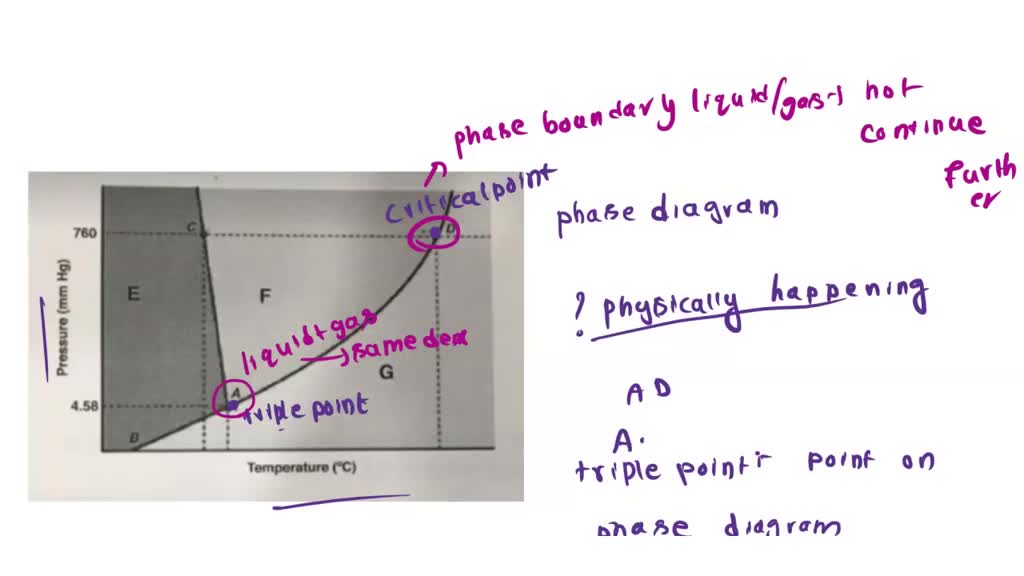 phase boundary liquid/gas → not
continue
furth
er
critical point
phase diagram
760
C
D
E
F
? physically happening
Pressure (mm Hg)
liquid + gas
→ same den
G
A
4.58
triple point
A D
A.
B
triple point : point on
Temperature (°C)
phase diagram